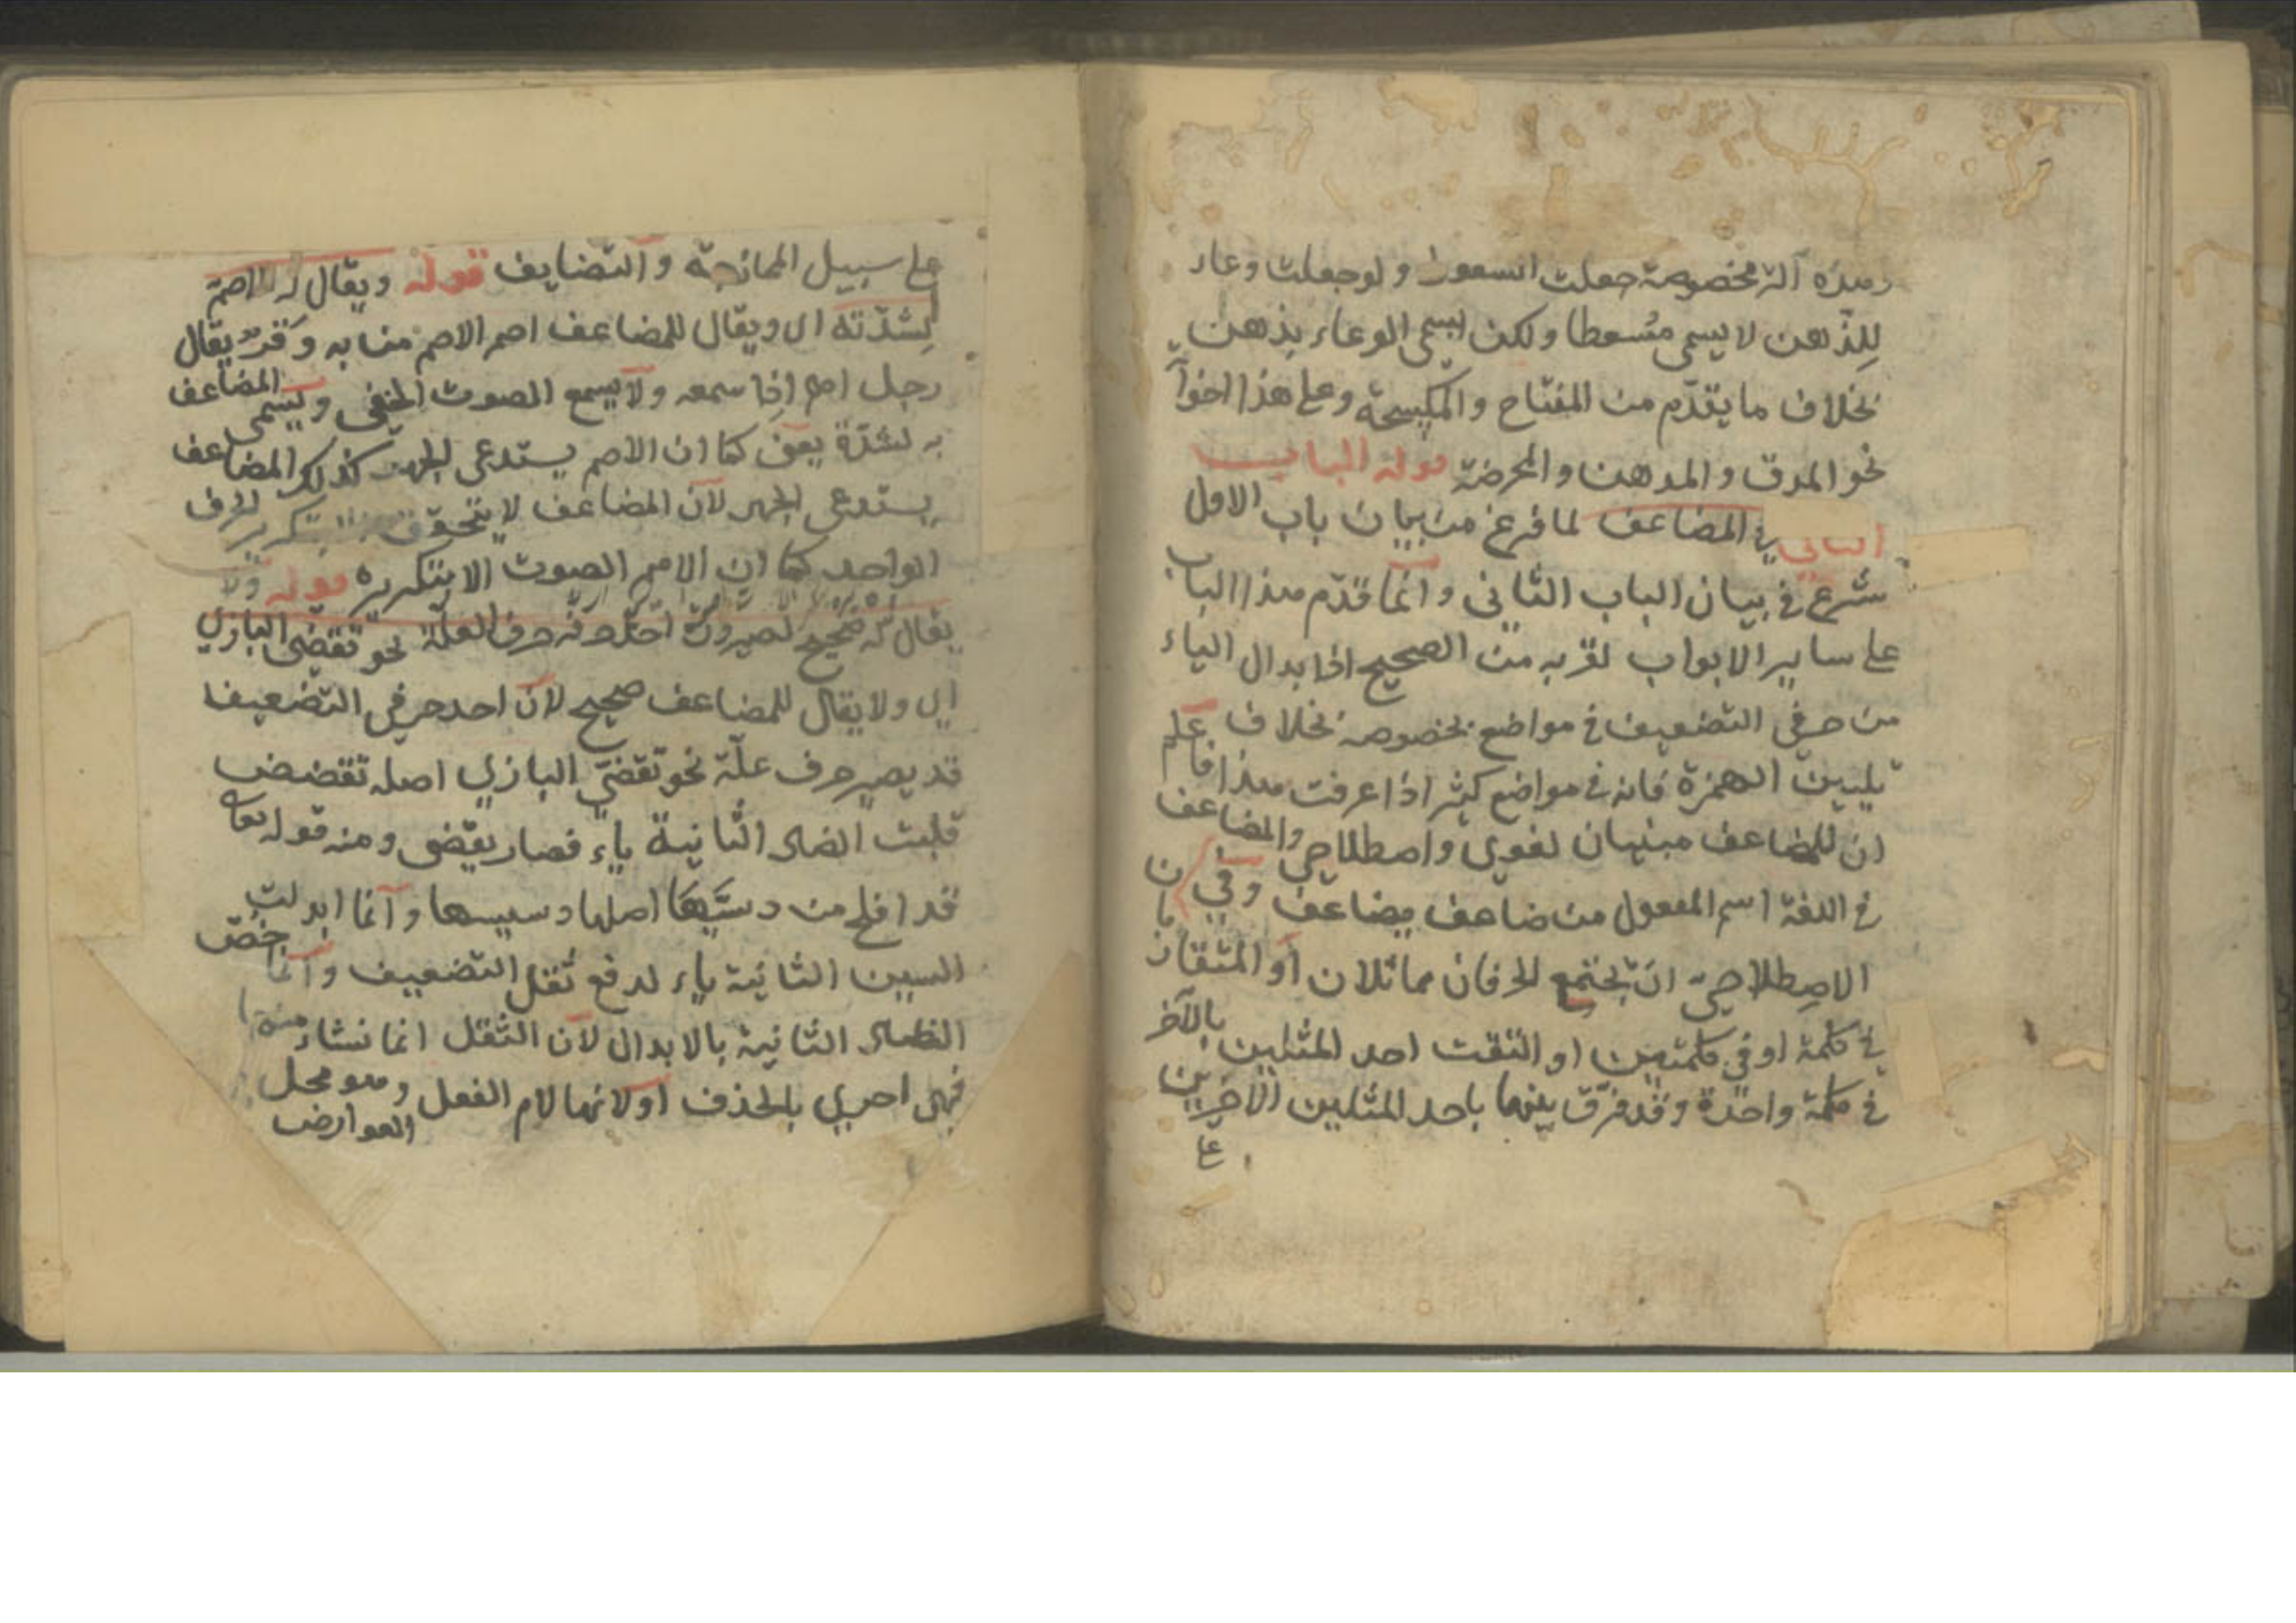 وهذه آلة مخصوصة جعلت السعوط ولو جعلت وعاء
للذهن لا يسمى مسعطا ولكن ليسمى الوعاء بذهن
بخلاف ما يقدم من المفتاح والمكسحة وعلى هذا اخوا
نحو المدق والمدهن والمحرضة قوله الباب
الثاني في المضاعف لما فرغ من بيان باب الاول
شرع في بيان الباب الثاني وانما قدم هذا الباب
على ساير الابواب لقربه من الصحيح اذا بدال الياء
من حرفي التضعيف في مواضع بخصوصه بخلاف
تليين الهمزة فانه في مواضع كثير اذا عرفت هذا فاعلم
ان للمضاعف مبنيان لغوي واصطلاحي والمضاعف
في اللغة اسم المفعول من ضاعف يضاعف وفي
الاصطلاحي ان يجتمع الحرفان مماثلان او المتقان
في كلمة او في كلمتين او التقت احد المثلين بالآخر
في كلمة واحدة وقد فرق بينهما باحد المثلين الآخرين
على
على سبيل الممازجة والتضايف قوله ويقال له الاصم
لشدته اى ويقال للمضاعف اصم الاصم من به وقر يقال
رجل اصم اذا سمعه ولا يسمع الصوت الخفي ويسمى المضاعف
به لشدة يعني كما ان الاصم يستدعى الجهر كذلك المضاعف
يستدعى الجهر لان المضاعف لا يتحقق بتكرير الحرف
الواحد كما ان الاصم الصوت الا بتكريره قوله ولا
يقال له صحيح لصيرورة احد حرفيه حرف العلة نحو تقضى البازي
اي ولا يقال للمضاعف صحيح لان احد حرفي التضعيف
قد يصير حرف علة نحو تقضي البازي اصله تقضض
قلبت الضاد الثانية ياء فصار يقضى ومنه قوله تعالى
قد افلح من دسيها اصلها دسيسها وانما ابدلت
السين الثانية ياء لدفع ثقل التضعيف وانما خص
الضاد الثانية بالابدال لان الثقل انما نشاء منها
فهى احرى بالحذف او لانها لام الفعل وهو محل
العوارض